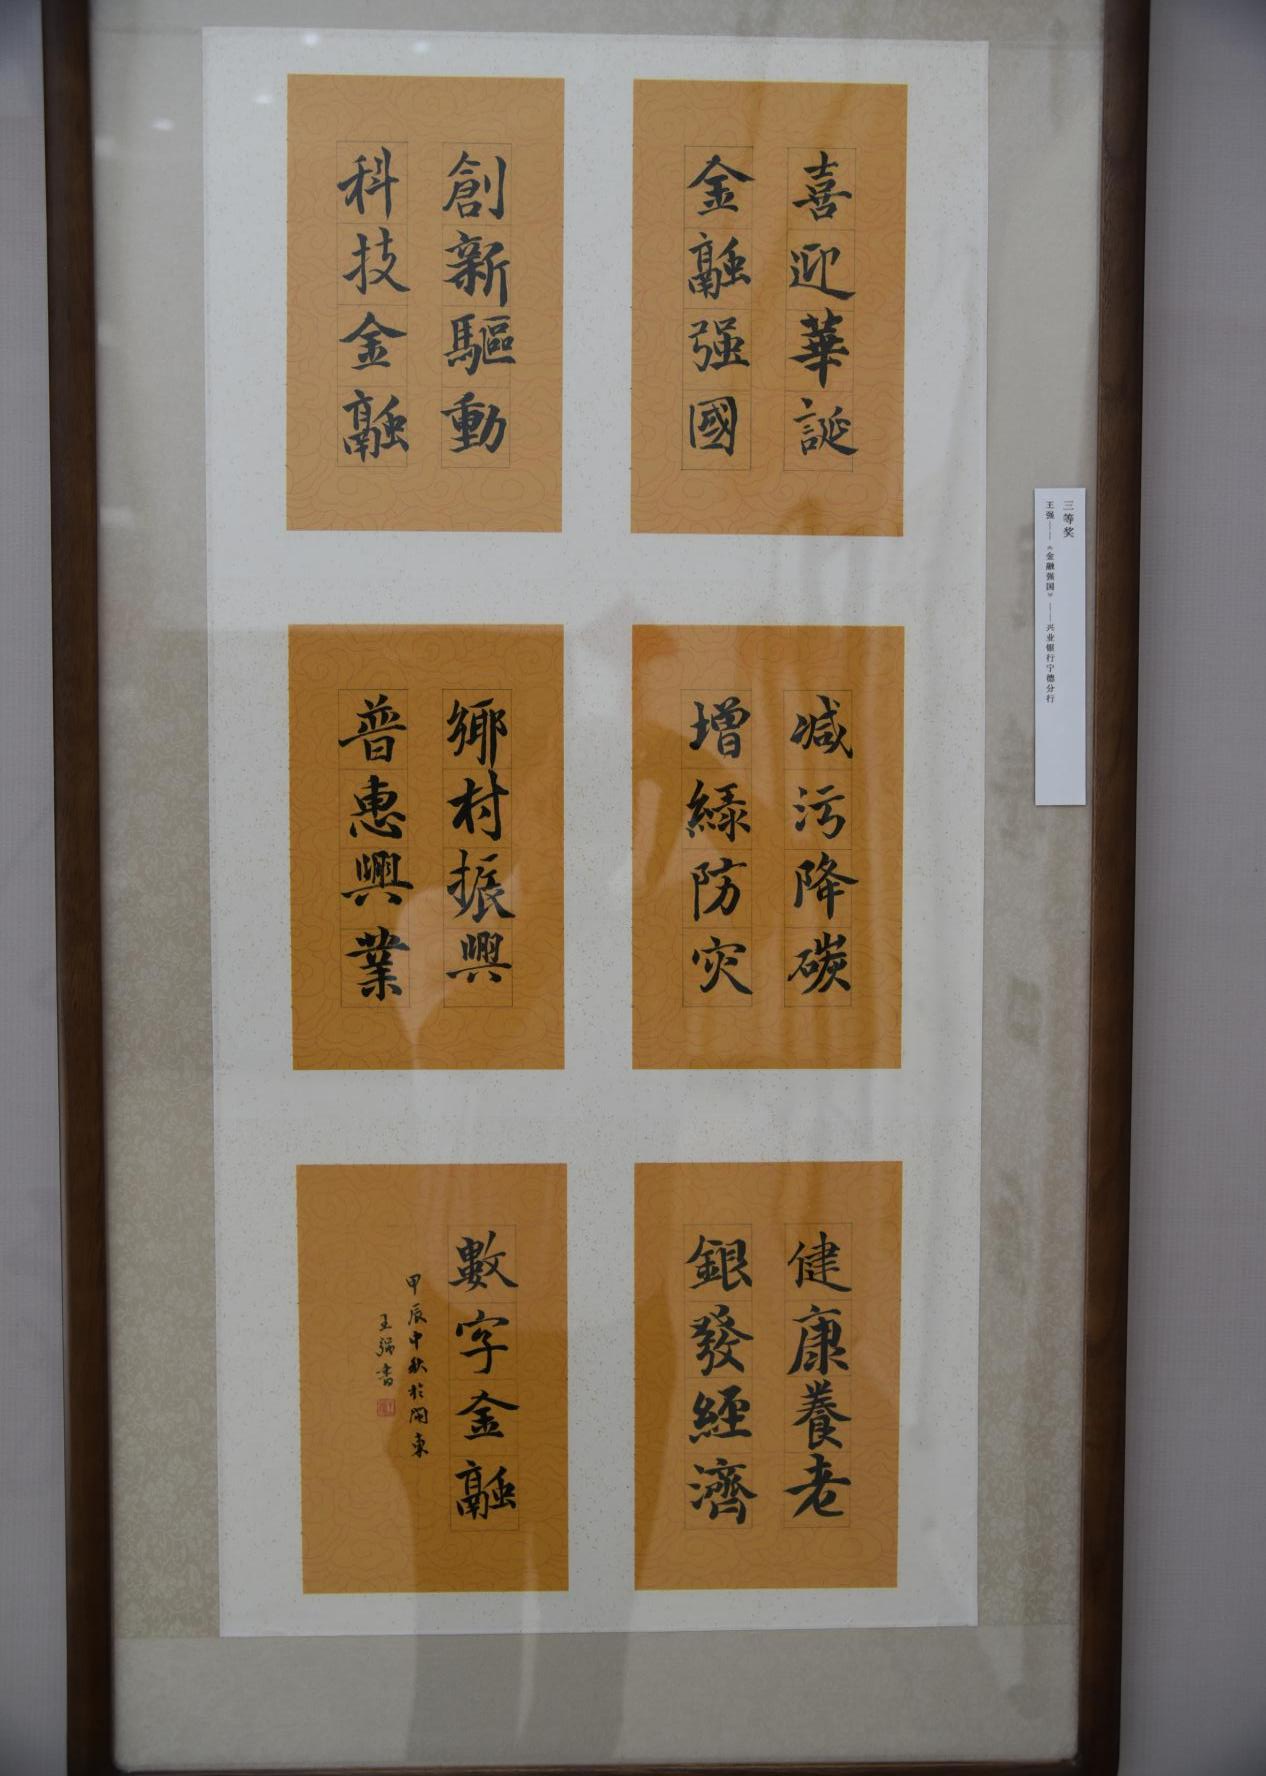 喜迎華誕
金融强國
創新驅動
科技金融
减污降碳
增緑防灾
鄉村振興
普惠興業
健康養老
銀發經濟
數字金融
甲辰中秋於閩東
王强書
三等奖
王强——《金融强国》——兴业银行宁德分行